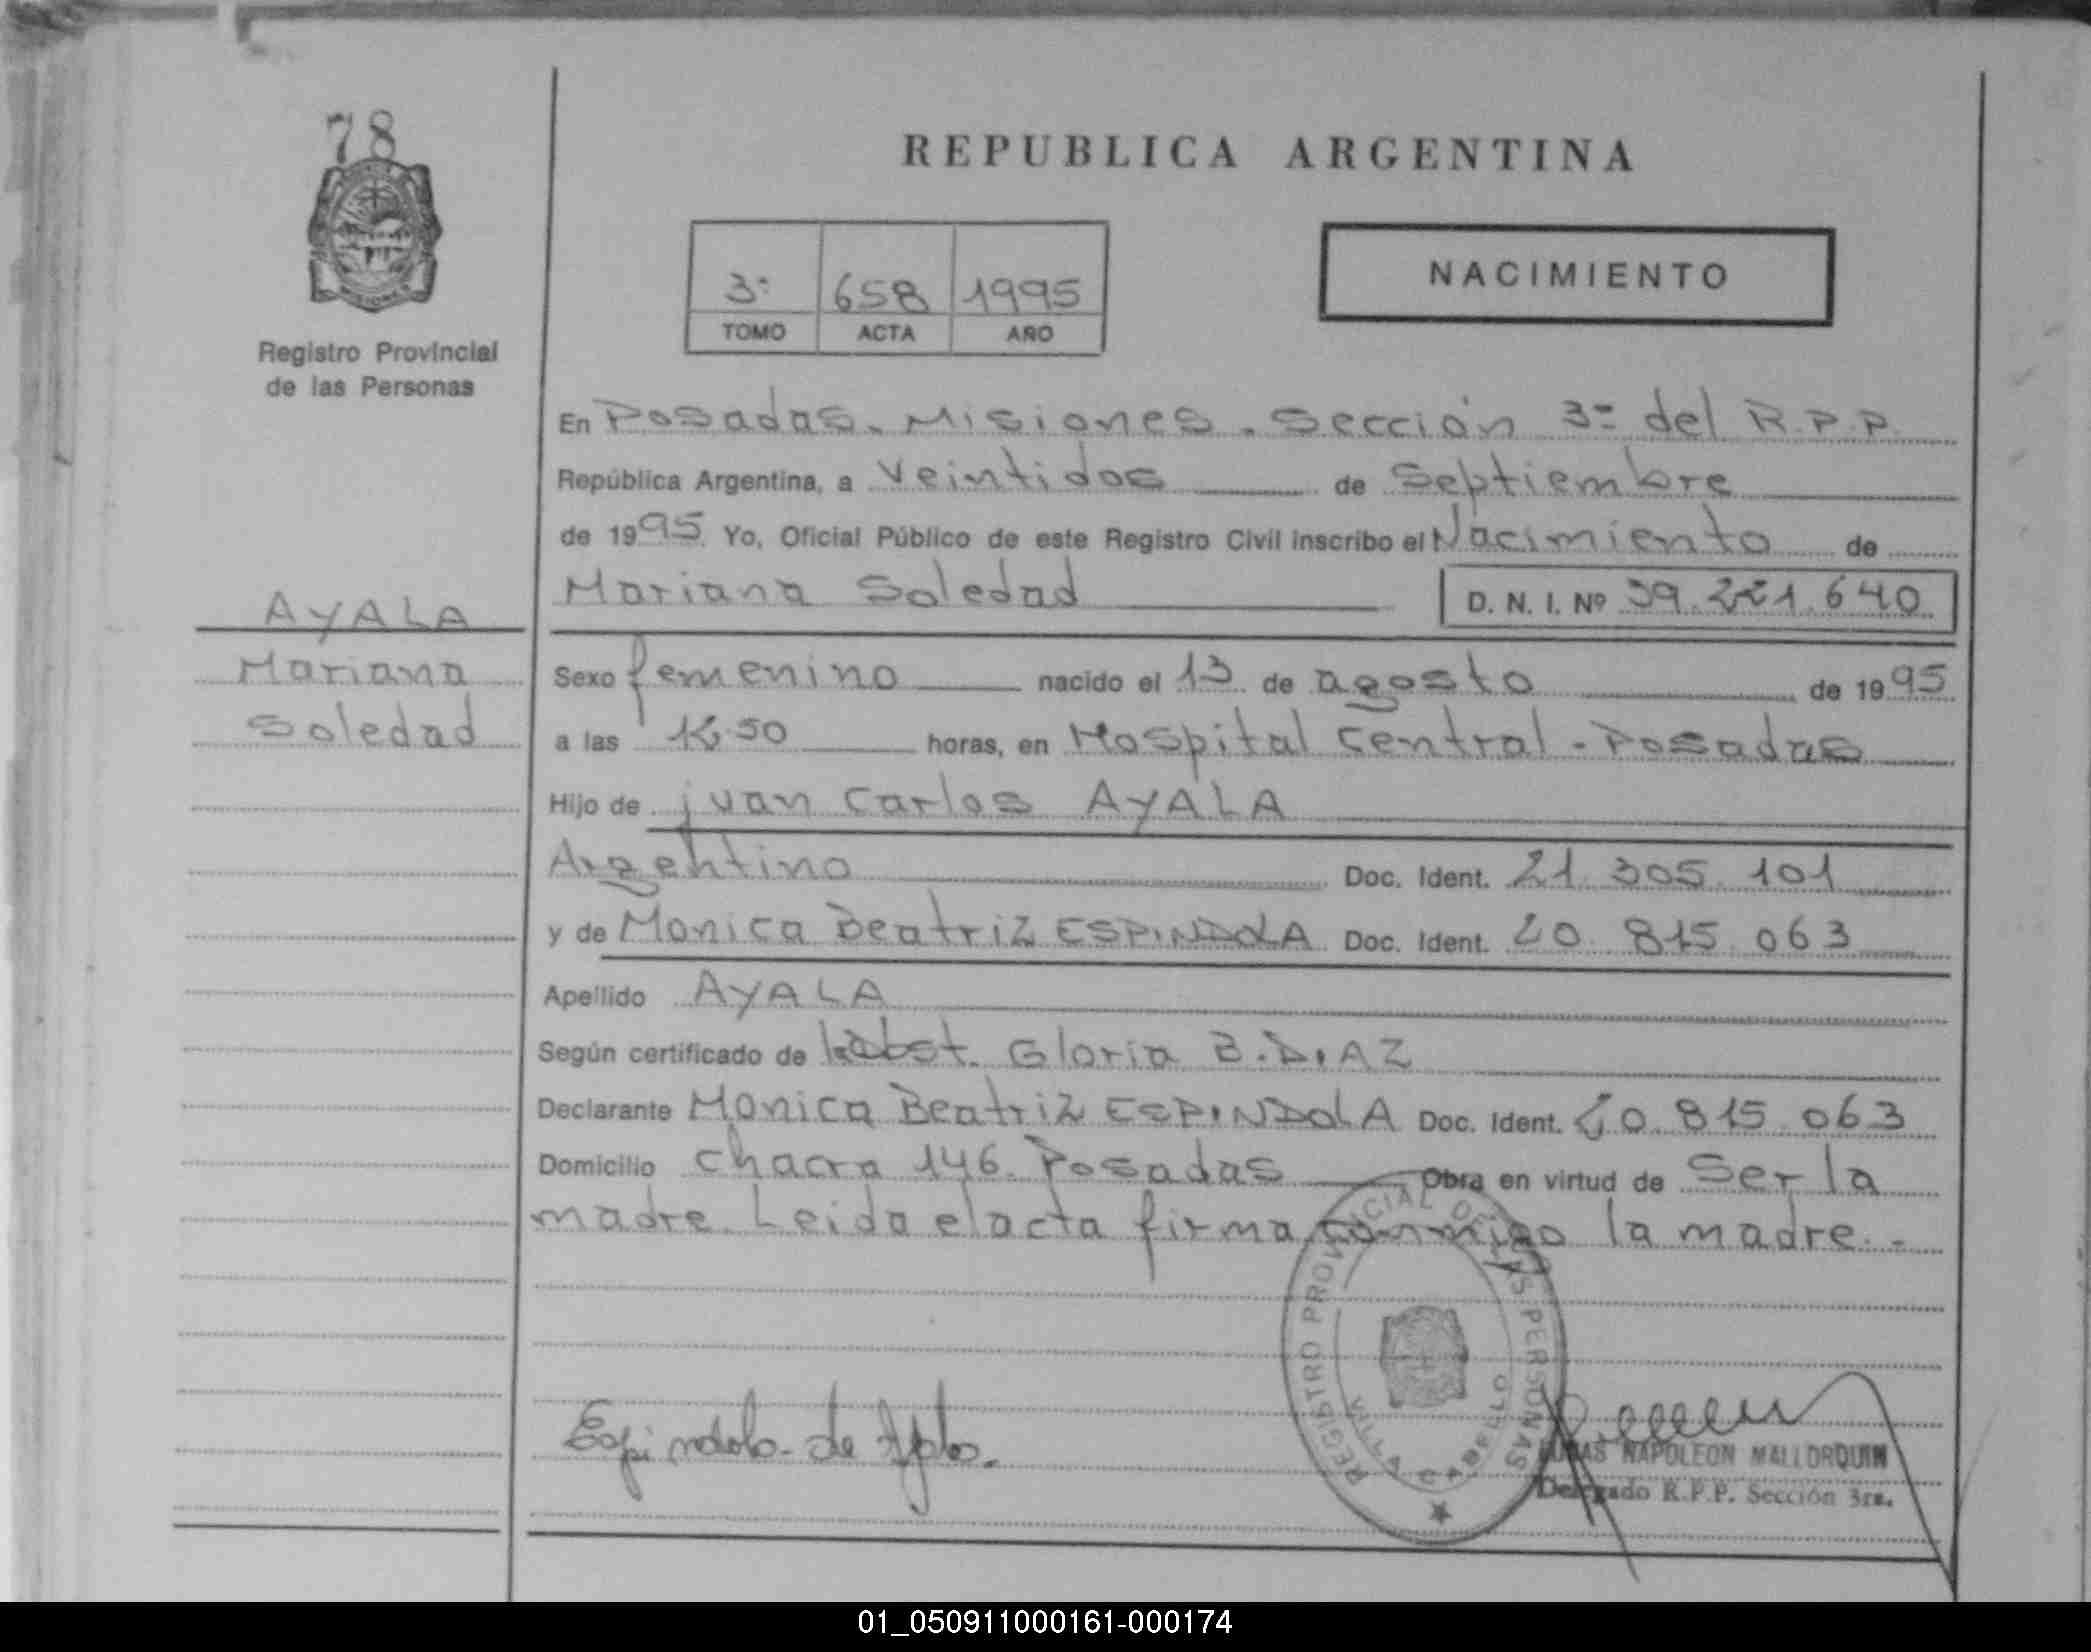 78
REPUBLICA ARGENTINA
3ª 658 1995
TOMO ACTA AÑO
NACIMIENTO
Registro Provincial
de las Personas
En Posadas. Misiones. Sección 3ª del R.P.P.
República Argentina, a Veintidos de Septiembre
de 1995 Yo, Oficial Público de este Registro Civil inscribo el Nacimiento de
Mariana Soledad D. N. I. Nº 39.221.640
AYALA
Mariana
Soledad
Sexo femenino nacido el 13 de agosto de 1995
a las horas, en Hospital Central - Posadas
Hijo de Juan Carlos AYALA
Argentino Doc. Ident. 21.305.101
y de Monica Beatriz ESPINDOLA Doc. Ident. 20.815.063
Apellido AYALA
Según certificado de Gloria B. DIAZ
Declarante Monica Beatriz ESPINDOLA Doc. Ident. 20.815.063
Domicilio Chacra 146. Posadas Obra en virtud de Ser la
madre. Leida el acta firma conmigo la madre.-
REGISTRO PROVINCIAL DE LAS PERSONAS
Espindola de Ayala.
NAPOLEON MALLORQUIN
Delegado R.P.P. Sección 3ra.
01_050911000161-000174